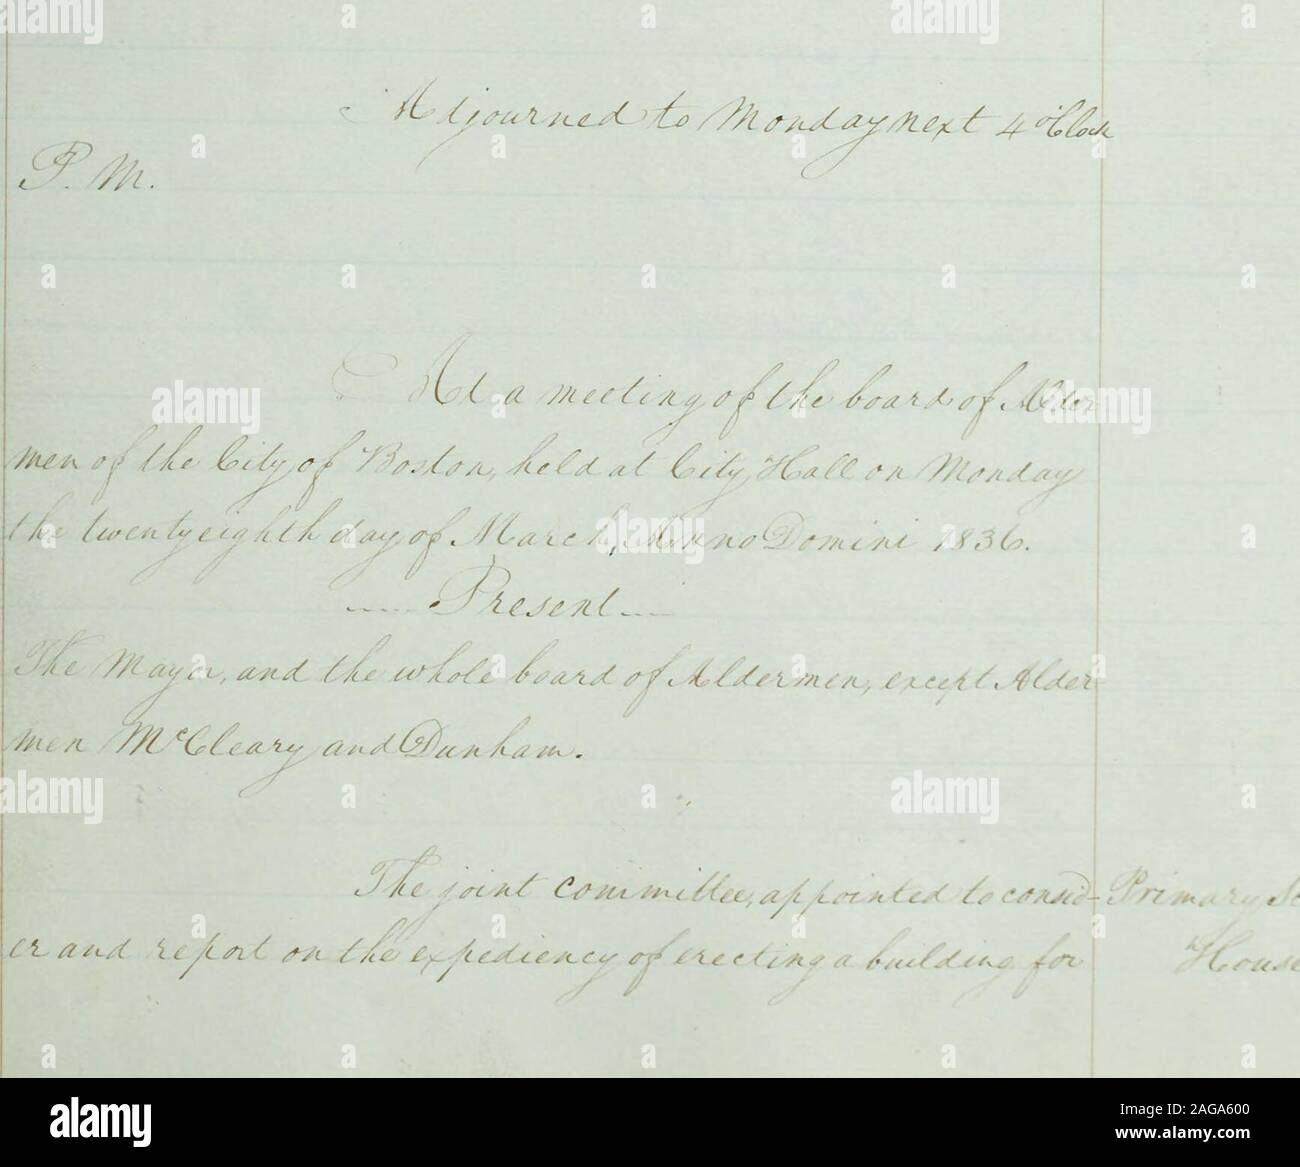 Adjourned to Monday next 4 o'Clock
P. M.
At a meeting of the board of Alder
men of the City of Boston, held at City Hall on Monday
the twenty eighth day of March, Anno Domini 1836.
Present
The Mayor, and the whole board of Aldermen, except Alder
men McCleary and Dunham.
The joint committee, appointed to consid-
er and report on the expediency of erecting a building for
Primary Sc
House
alamy
Image ID: 2AGA600
www.alamy.com